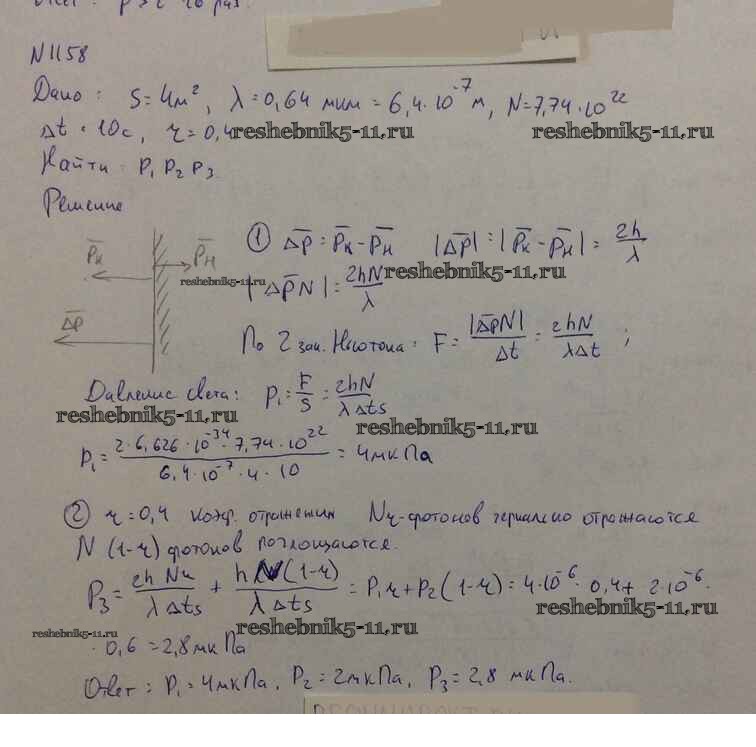 N1158
Дано: S=4м², λ=0,64 мкм = 6,4·10⁻⁷м, N=7,74·10²²
Δt=10c, r=0,4
reshebnik5-11,ru reshebnik5-11,ru
Найти: P₁ P₂ P₃
Решение
P̅к P̅н
Δp̅
reshebnik5-11,ru
① Δp̅=p̅к-p̅н |Δp̅|=|p̅к-p̅н|=2h/λ
|Δp̅N|=2hN/λ reshebnik5-11,ru
По 2 зак. Ньютона: F=|Δp̅N|/Δt=2hN/λΔt;
Давление света: P₁=F/S=2hN/λΔtS
reshebnik5-11,ru reshebnik5-11,ru
P₁=2·6,626·10⁻³⁴·7,74·10²²/6,4·10⁻⁷·4·10=4мкПа
② r=0,4 коэф. отражения Nr-фотонов зеркально отражаются
N(1-r) фотонов поглощаются.
P₃=2hNr/λΔtS+hN(1-r)/λΔtS=P₁r+P₂(1-r)=4·10⁻⁶·0,4+2·10⁻⁶·
reshebnik5-11,ru reshebnik5-11,ru reshebnik5-11,ru
·0,6=2,8мкПа
Ответ: P₁=4мкПа, P₂=2мкПа, P₃=2,8 мкПа.